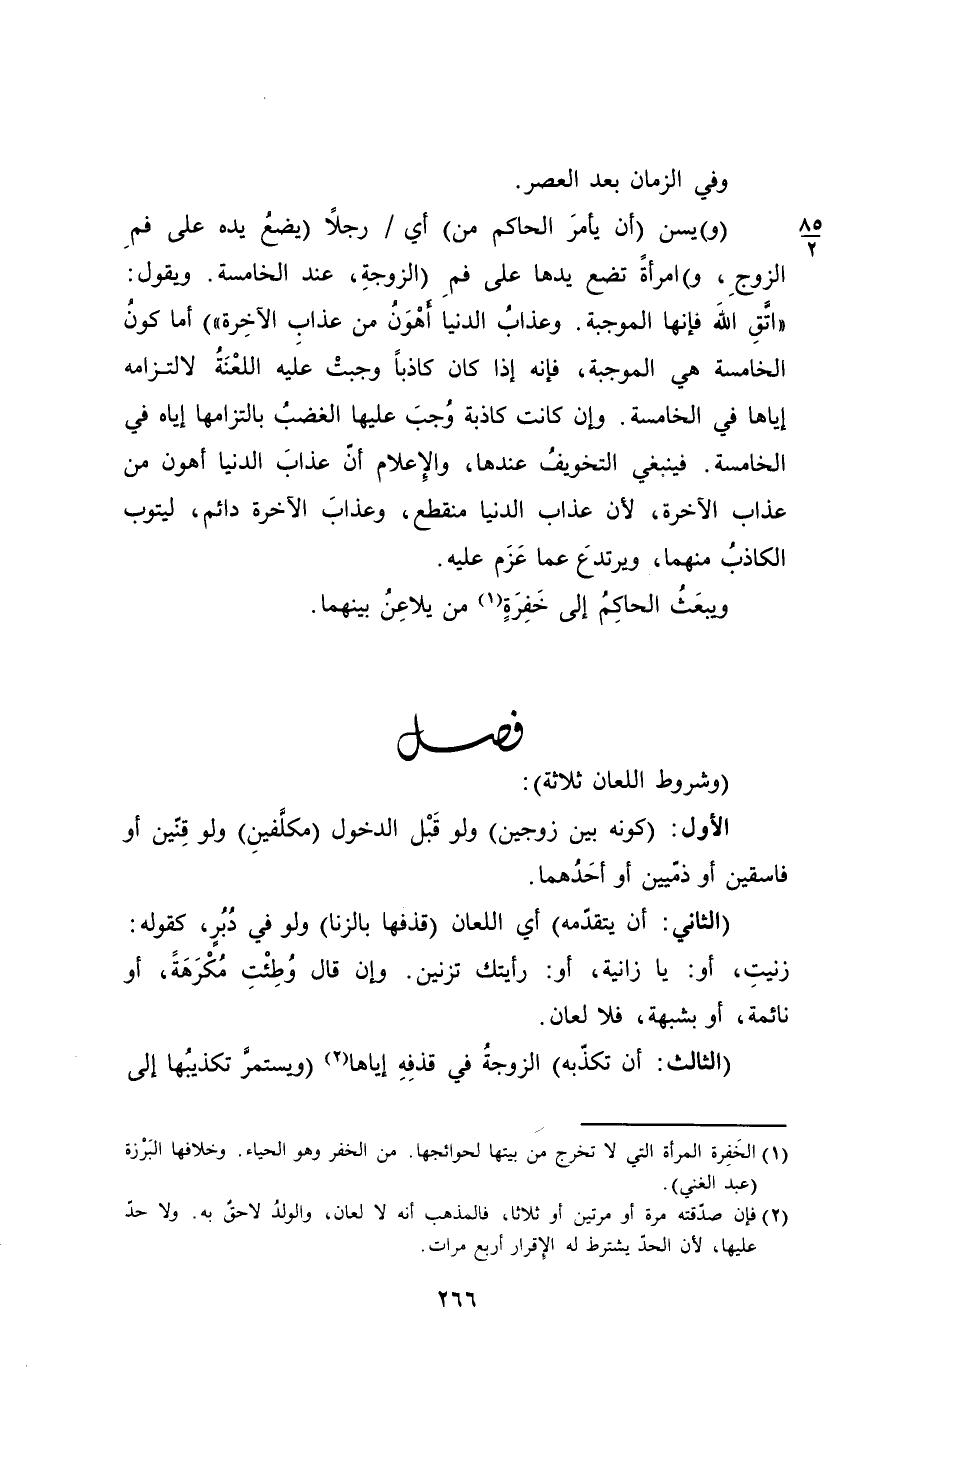 وفي الزمان بعد العصر.
٨٥
٢
(و)يسن (أن يأمرَ الحاكم من) أي / رجلًا (يضعُ يده على فمِ
الزوجِ، و)امرأةً تضع يدها على فمِ (الزوجةِ، عند الخامسة. ويقول:
«اتَّقِ اللهَ فإنها الموجبة. وعذابُ الدنيا أَهْوَنُ من عذابِ الآخِرة») أما كونُ
الخامسة هي الموجبة، فإنه إذا كان كاذباً وجبتْ عليه اللعْنَةُ لالتـزامه
إياها في الخامسة. وإن كانت كاذبة وُجبَ عليها الغضبُ بالتزامها إياه في
الخامسة. فينبغي التخويفُ عندها، والإِعلام أنّ عذابَ الدنيا أهون من
عذاب الآخرة، لأن عذاب الدنيا منقطع، وعذابَ الآخرة دائم، ليتوب
الكاذبُ منهما، ويرتدعَ عما عَزَم عليه.
ويبعَثُ الحاكِمُ إلى خَفِرَةٍ(١) من يلاعِنُ بينهما.
فصل
(وشروط اللعان ثلاثة):
الأول: (كونه بين زوجين) ولو قَبْل الدخول (مكلَّفينِ) ولو قِنّين أو
فاسقين أو ذمّيين أو أحَدُهما.
(الثاني: أن يتقدّمه) أي اللعان (قذفها بالزنا) ولو في دُبُرٍ، كقوله:
زنيتِ، أو: يا زانية، أو: رأيتك تزنين. وإن قال وُطِئْتِ مُكْرَهَةً، أو
نائمة، أو بشبهة، فلا لعان.
(الثالث: أن تكذّبه) الزوجةُ في قذفِهِ إياها(٢) (ويستمرَّ تكذيبُها إلى
(١) الخَفِرة المرأة التي لا تخرج من بيتها لحوائجها. من الخفر وهو الحياء. وخلافها البَرْزة
(عبد الغني).
(٢) فإن صدّقته مرة أو مرتين أو ثلاثا، فالمذهب أنه لا لعان، والولدُ لاحقٌ به. ولا حدّ
عليها، لأن الحدّ يشترط له الإِقرار أربع مرات.
٢٦٦